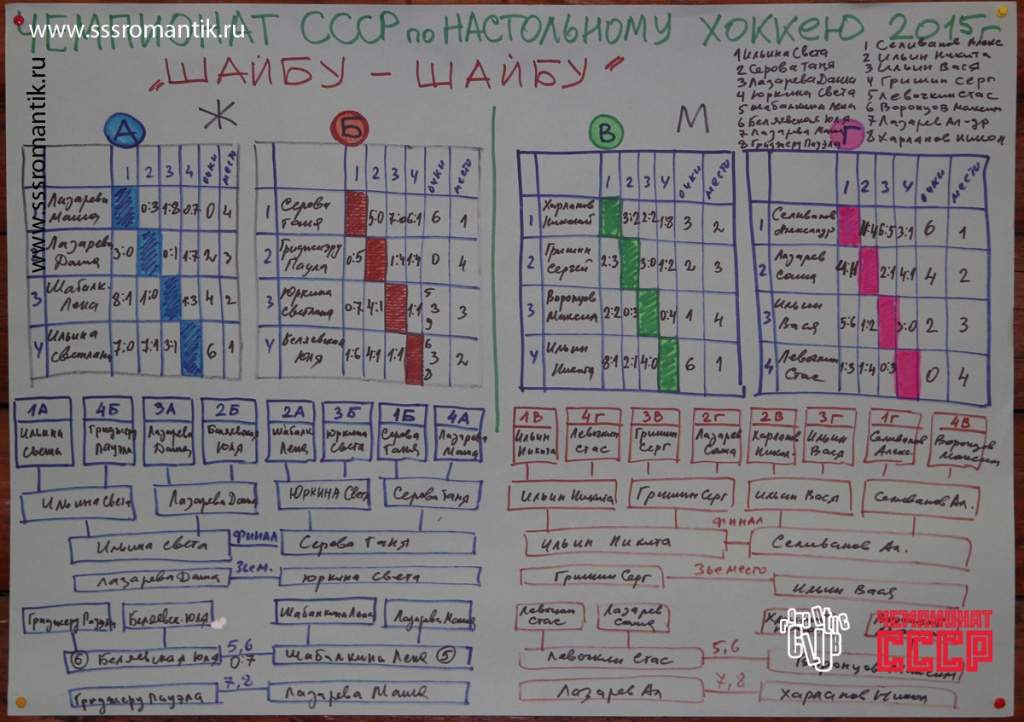 www.sssromantik.ru
www.sssromantik.ru
www.sssromantik.ru
ЧЕМПИОНАТ СССР по НАСТОЛЬНОМУ ХОККЕЮ 2015г
„ШАЙБУ – ШАЙБУ"
1 Ильина Света
2 Серова Таня
3 Лазарева Даша
4 Юркина Света
5 Шабалкина Лена
6 Беляевская Юля
7 Лазарева Маша
8 Гриджеру Пауэла
1 Селиванов Алекс
2 Ильин Никита
3 Ильин Вася
4 Гришин Серг
5 Левочкин Стас
6 Воронцов Максим
7 Лазарев Ал-др
8 Харланов Никол
А Ж
1 2 3 4 очки место
Лазарева Маша 0:3 1:8 0:7 0 4
Лазарева Даша 3:0 0:1 1:7 2 3
3 Шабалк. Лена 8:1 1:0 1:3 4 2
4 Ильина Светлана 7:0 7:1 3:1 6 1
Б
1 2 3 4 очки место
1 Серова Таня 5:0 7:0 6:1 6 1
2 Гриджеру Паула 0:5 1:4 1:4 0 4
3 Юркина Светлана 0:7 4:1 1:1 3 3
4 Беляевская Юля 1:6 4:1 1:1 3 2
В М
1 2 3 4 очки место
1 Харланов Николай 3:2 2:2 1:8 3 2
2 Гришин Сергей 2:3 3:0 1:2 2 3
3 Воронцов Максим 2:2 0:3 0:4 1 4
4 Ильин Никита 8:1 2:1 4:0 6 1
Г
1 2 3 4 очки место
1 Селиванов Александр 6:5 3:1 6 1
2 Лазарев Саша 2:1 4:1 4 2
3 Ильин Вася 5:6 1:2 3:0 2 3
4 Левочкин Стас 1:3 1:4 0:3 0 4
1А 4Б 3А 2Б 2А 3Б 1Б 4А
Ильина Света Гриджеру Пауэла Лазарева Даша Беляевская Юля Шабалк Лена Юркина Света Серова Таня Лазарева Маша
Ильина Света Лазарева Даша Юркина Света Серова Таня
Ильина Света ФИНАЛ Серова Таня
Лазарева Даша 3ем. Юркина Света
Гриджеру Пауэла Беляевск. Юля Шабалкина Лена Лазарева Маша
6 Беляевская Юля 5,6 0:7 Шабалкина Лена 5
Гриджеру Пауэла 7,8 Лазарева Маша
1В 4Г 3В 2Г 2В 3Г 1Г 4В
Ильин Никита Левочкин Стас Гришин Серг Лазарев Саша Харланов Никол. Ильин Вася Селиванов Алекс. Воронцов Максим
Ильин Никита Гришин Серг Ильин Вася Селиванов Ал.
Ильин Никита ФИНАЛ Селиванов Ал.
Гришин Серг 3ье место Ильин Вася
Левочкин Стас Лазарев Саша
Левочкин Стас 5,6 Воронцов Максим
Лазарев Ал 7,8 Харланов Никол
ЧЕМПИОНАТ
СССР